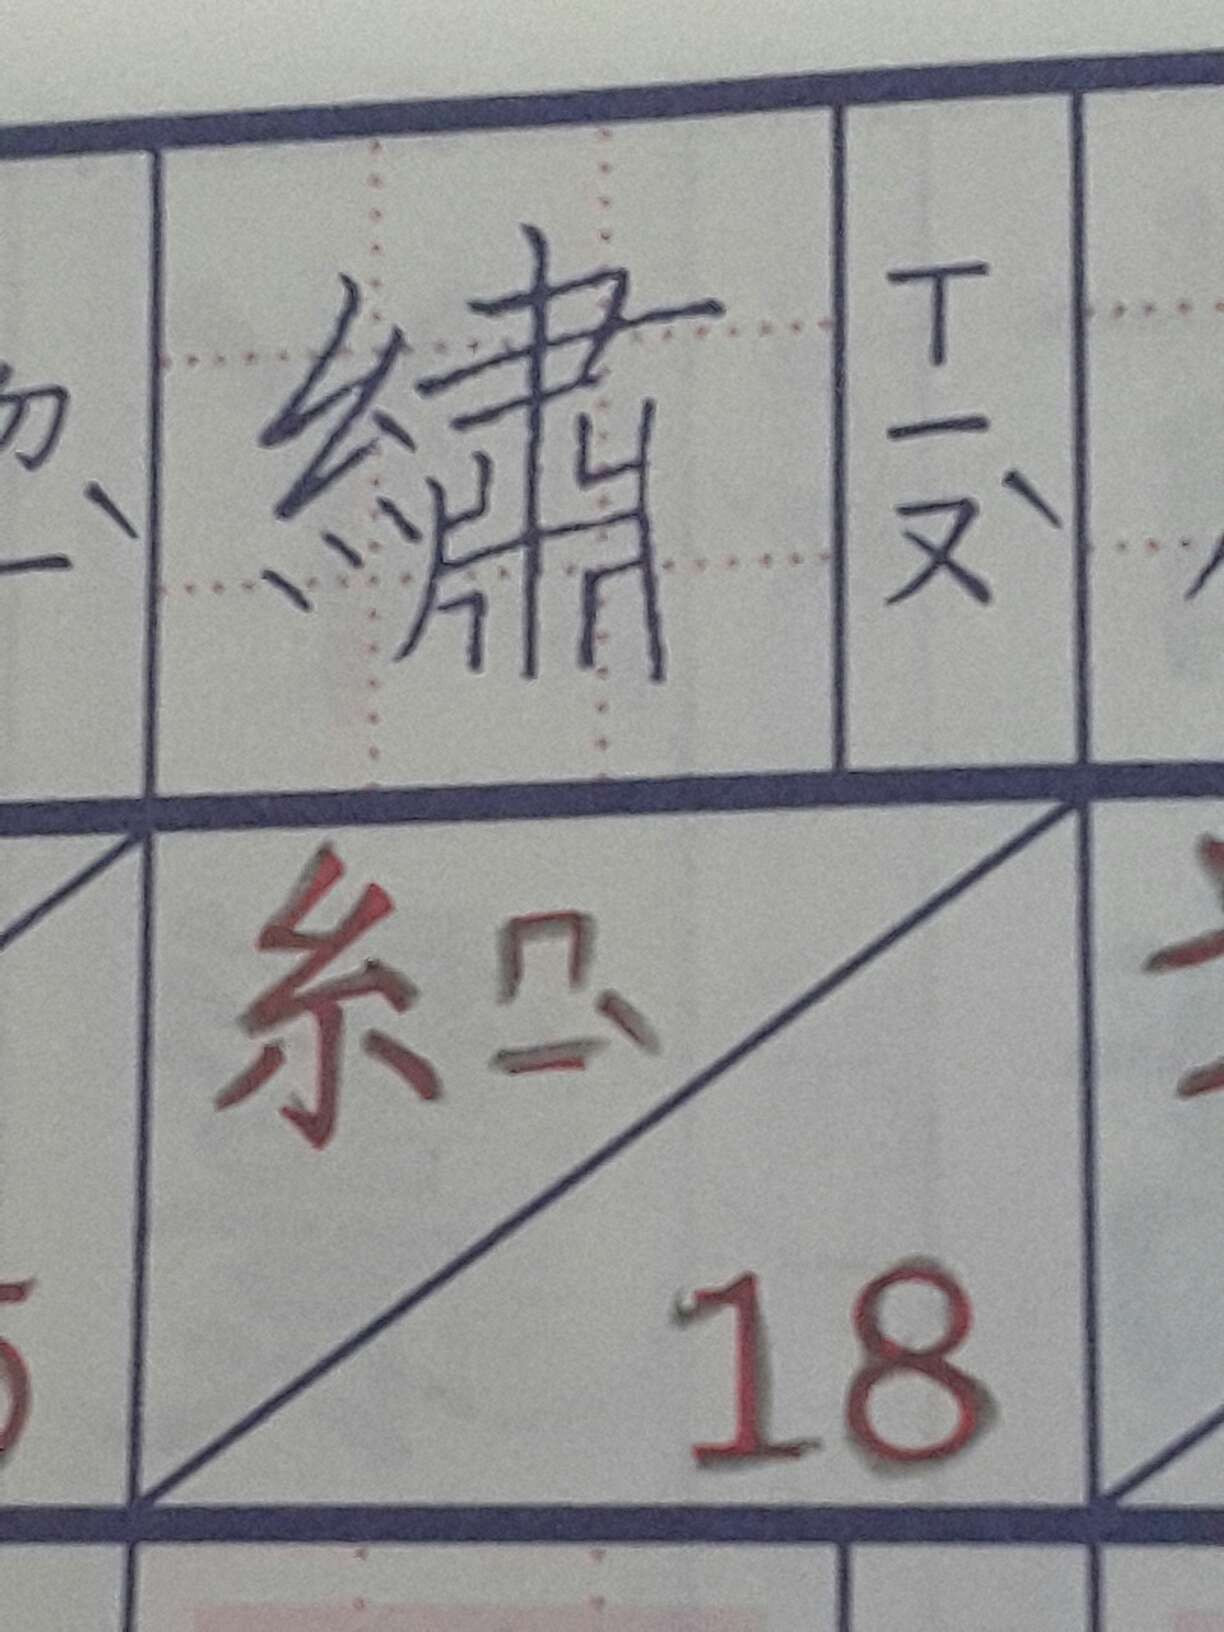 繡 ㄒㄧㄡˋ
糸 ㄇㄧˋ
18